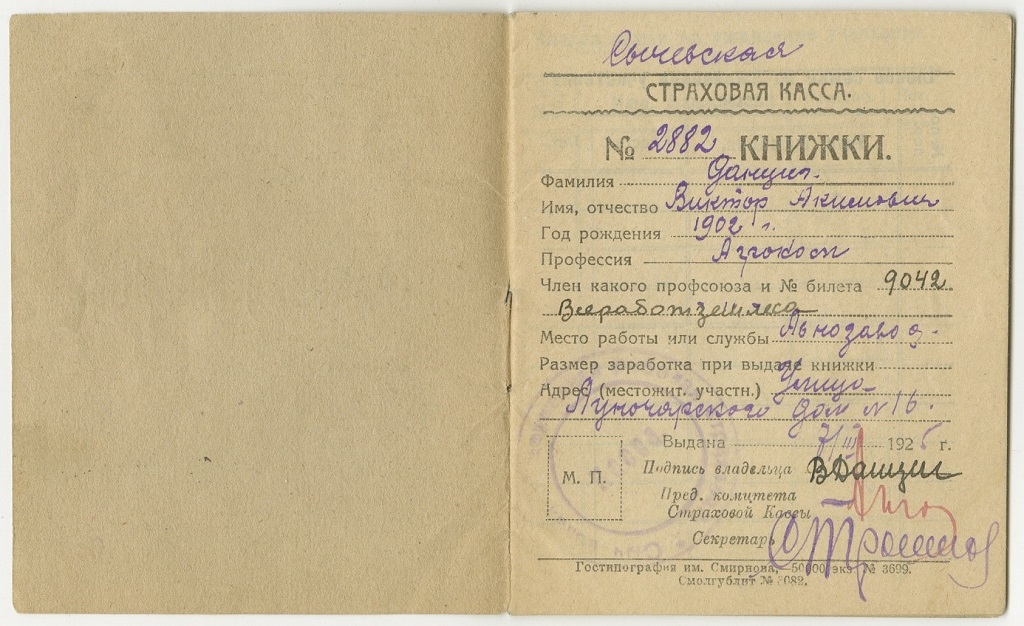 Сычевская
СТРАХОВАЯ КАССА.
№ 2882 КНИЖКИ.
Фамилия Данциг.
Имя, отчество Виктор Акимович
Год рождения 1902 г.
Профессия
Член какого профсоюза и № билета 9042
Всеработземлеса
Место работы или службы Льнозавод.
Размер заработка при выдаче книжки
Адрес (местожит. участн.) Улица
Луночарского дом № 16.
Выдана 7/III 1925 г.
М. П.
Подпись владельца ВДанциг
Пред. комитета
Страховой Кассы
Секретарь
Гостипография им. Смирнова, 50000 экз № 3699.
Смолгублит № 5082.